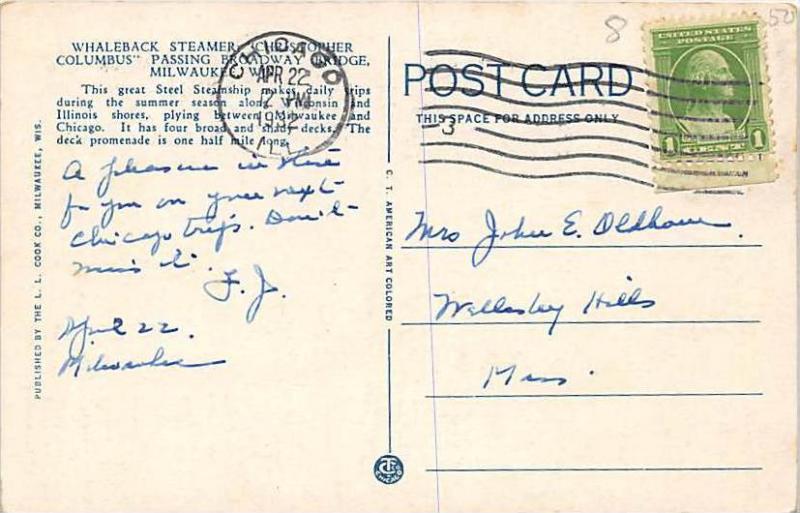 WHALEBACK STEAMER, "CHRISTOPHER
COLUMBUS" PASSING BROADWAY BRIDGE,
MILWAUKEE
This great Steel Steamship makes daily trips
during the summer season along Wisconsin and
Illinois shores, plying between Milwaukee and
Chicago. It has four broad and shady decks. The
deck promenade is one half mile long.
A pleasure in store
for you on your next
Chicago trip. Don't
miss it.
F. J.
April 22.
Milwaukee
PUBLISHED BY THE L. L. COOK CO., MILWAUKEE, WIS.
C. T. AMERICAN ART COLORED
CHICAGO
APR 22
2 PM
1932
ILL.
8
50
POST CARD
THIS SPACE FOR ADDRESS ONLY
3
UNITED STATES
POSTAGE
1 CENT 1
Mrs John E. Oldham.
Wellesley Hills
Mass.
CHICAGO